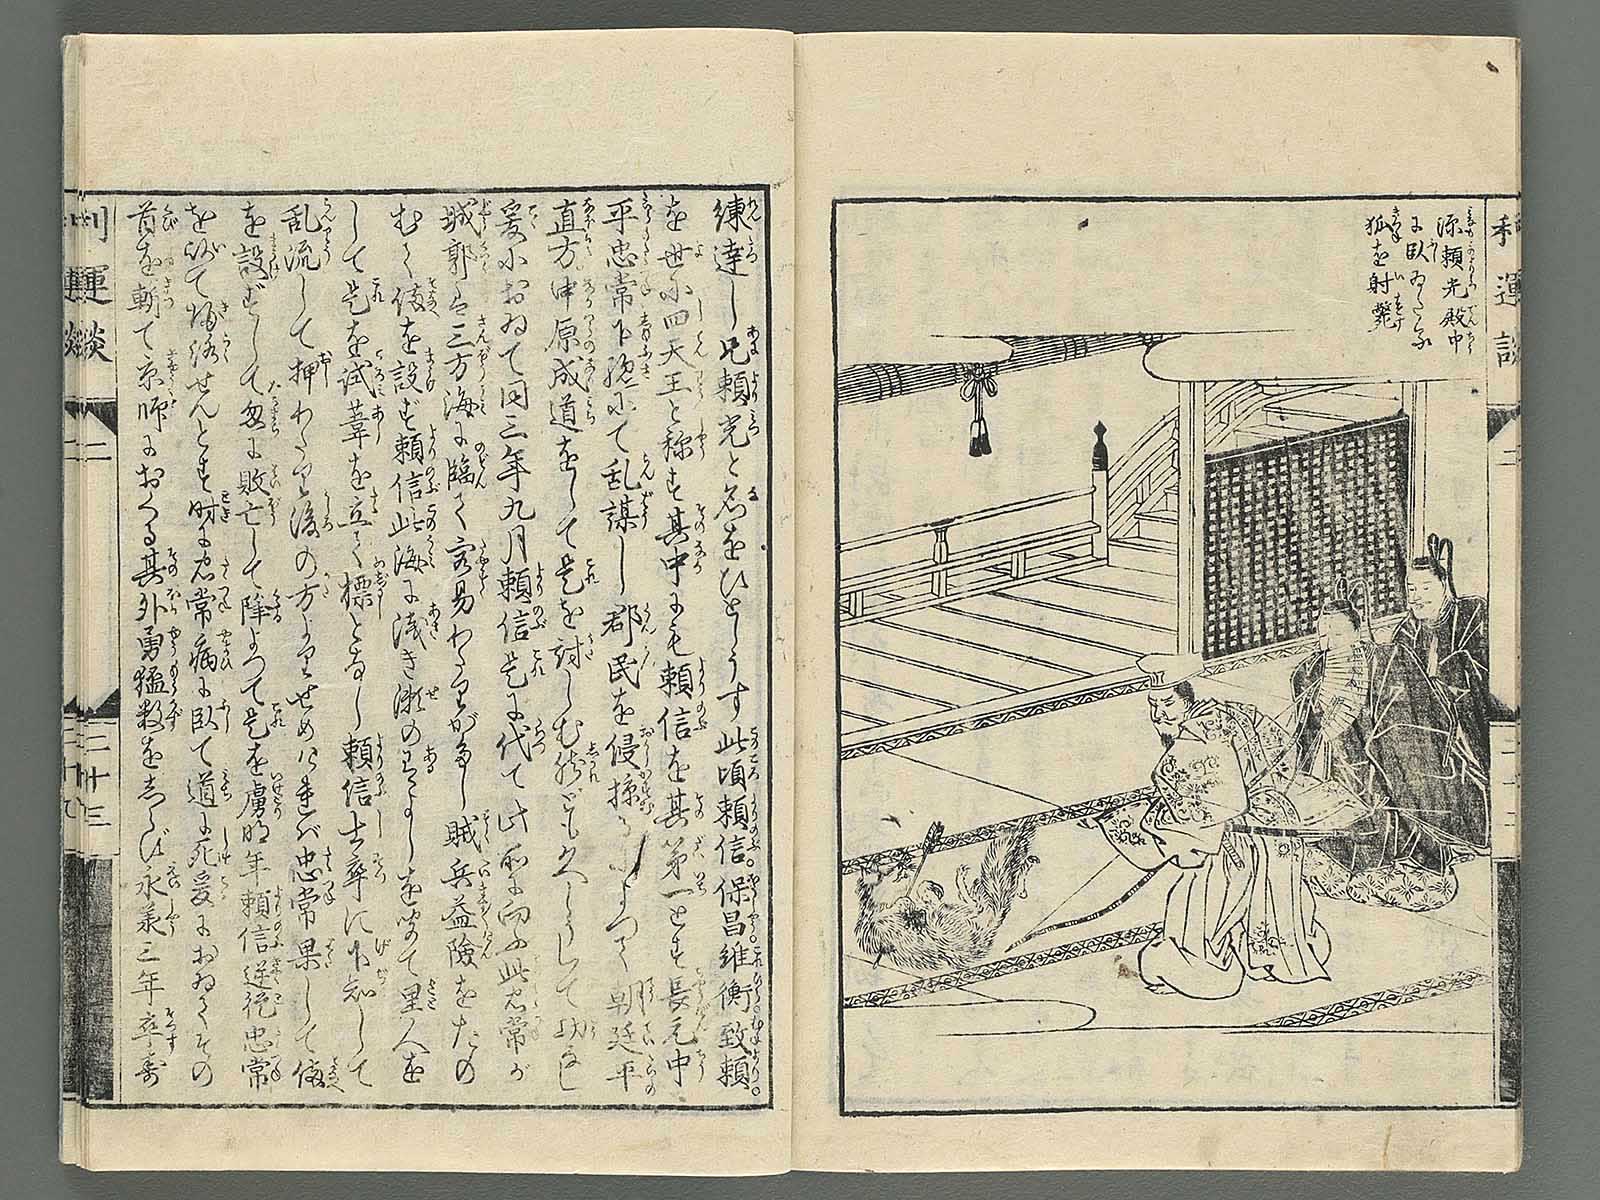 源頼光殿中
に臥ゐたる
狐を射斃
利運談
練達し兄頼光と名をひとしうす此頃頼信。保昌。維衡。致頼。
を世に四天王と称す其中にも頼信を其第一とす長元中
平忠常下総にて乱謀し郡民を侵掠るによつて朝廷平
直方中原成道をして是を討しむ然ども久しうして功なし
爰におゐて同三年九月頼信是に代て此所に向ふ此忠常が
城郭は三方海に臨て容易わたりがたし賊兵益険をたの
むて備を設ず頼信此海に浅き瀬のあるよしを聞て里人を
して是を試葦を立て標となし頼信士卒に下知して
乱流して押わたり後の方よりせめければ忠常果して備
を設ずして忽に敗亡して降よつて是を虜明年頼信逆徒忠常
を以て帰洛せんとす時に忠常病に臥て道に死爰におゐてその
首を斬て京師におくる其外勇猛数をしらず永承三年卒寿
利運談
二
二十三